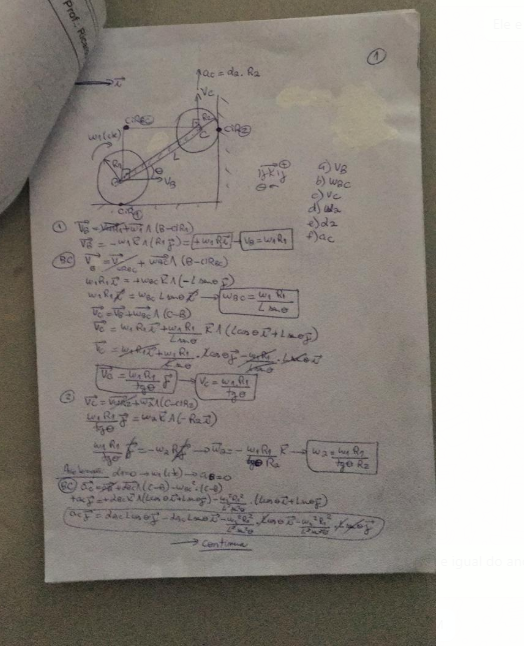 Prof. Ricar
1
ac = α2.R2
Vc
CIR2
ω1 (ck)
R1
L
θ
VB
C
CIR1
a) VB
b) ωBC
c) Vc
d) ω2
e) α2
f) ac
① VB = + ω1 ∧ (B-CIR1)
VB = -ω1 k ∧ (R1 j) = +ω1R1 i → VB = ω1R1
BC VB = V + ωBC ∧ (B-CIRBC)
ω1R1 i = +ωBC k ∧ (-L senθ j)
ω1R1 i = ωBC L senθ i → ωBC = ω1 R1 / L senθ
Vc = VB + ωBC ∧ (C-B)
Vc = ω1R1 i + ω1R1 / L senθ k ∧ (L cosθ i + L senθ j)
Vc = ω1R1 i + ω1R1 / L senθ . L cosθ j - ω1R1 / L senθ . L senθ i
Vc = ω1 R1 / tgθ j → Vc = ω1 R1 / tgθ
② Vc = + ω2 ∧ (C-CIR2)
ω1 R1 / tgθ j = ω2 k ∧ (-R2 i)
ω1 R1 / tgθ j = -ω2 R2 j → ω2 = - ω1 R1 / tgθ R2 k → ω2 = ω1 R1 / tgθ R2
→ ω1 (ck) → aB = 0
BC ac = aB + αBC ∧ (C-B) - ωBC² . (C-B)
+ac j = +αBC k ∧ (L cosθ i + L senθ j) - ω1² R1² / L² sen²θ . (L cosθ i + L senθ j)
ac j = αBC L cosθ j - αBC L senθ i - ω1² R1² / L² sen²θ . L cosθ i - ω1² R1² / L² sen²θ . L senθ j
→ continua
igual do an